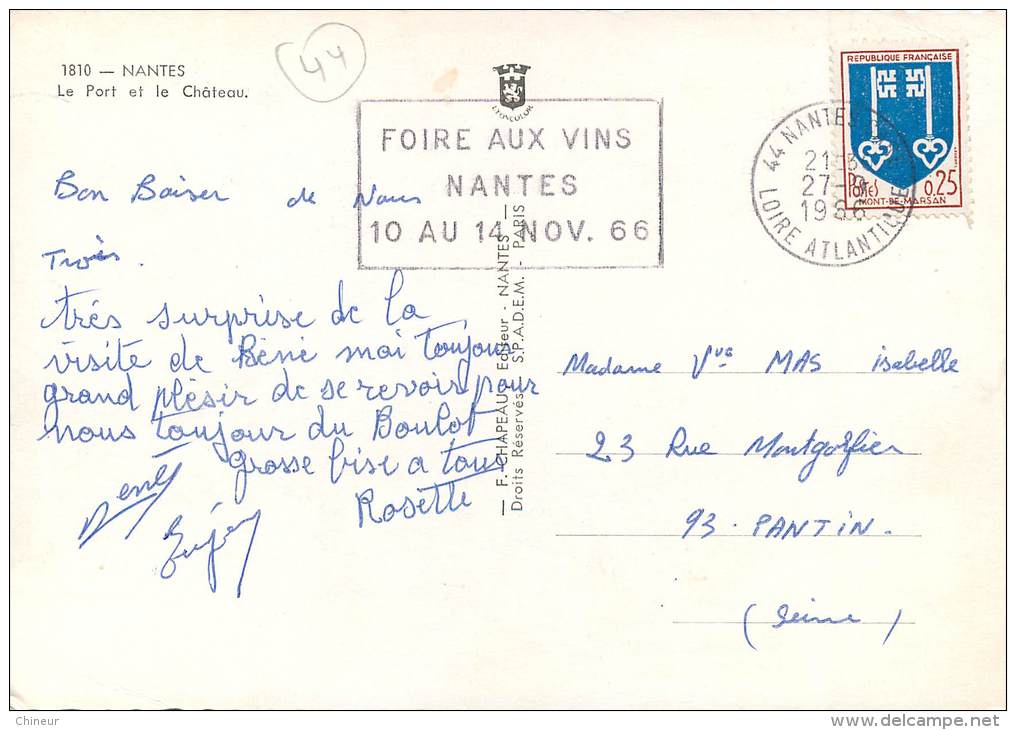 1810 — NANTES
Le Port et le Château.
44
LYONCOLOR
FOIRE AUX VINS
NANTES
10 AU 14 NOV. 66
RÉPUBLIQUE FRANÇAISE
Postes 0.25
MONT-DE-MARSAN
44 NANTES
27
1966
LOIRE ATLANTIQUE
Bon Baiser de Nous
Trois.
très surprise de la
visite de Béné mai toujour
grand plésir de se revoir pour
nous toujour du Boulot
grosse bise a tous
Rosette
— F. CHAPEAU, Editeur - NANTES —
Droits Réservés - S.P.A.D.E.M. - PARIS
Madame Vve MAS isabelle
23 Rue Montgolfier
93 - PANTIN.
(Seine)
Chineur
delcampe.net